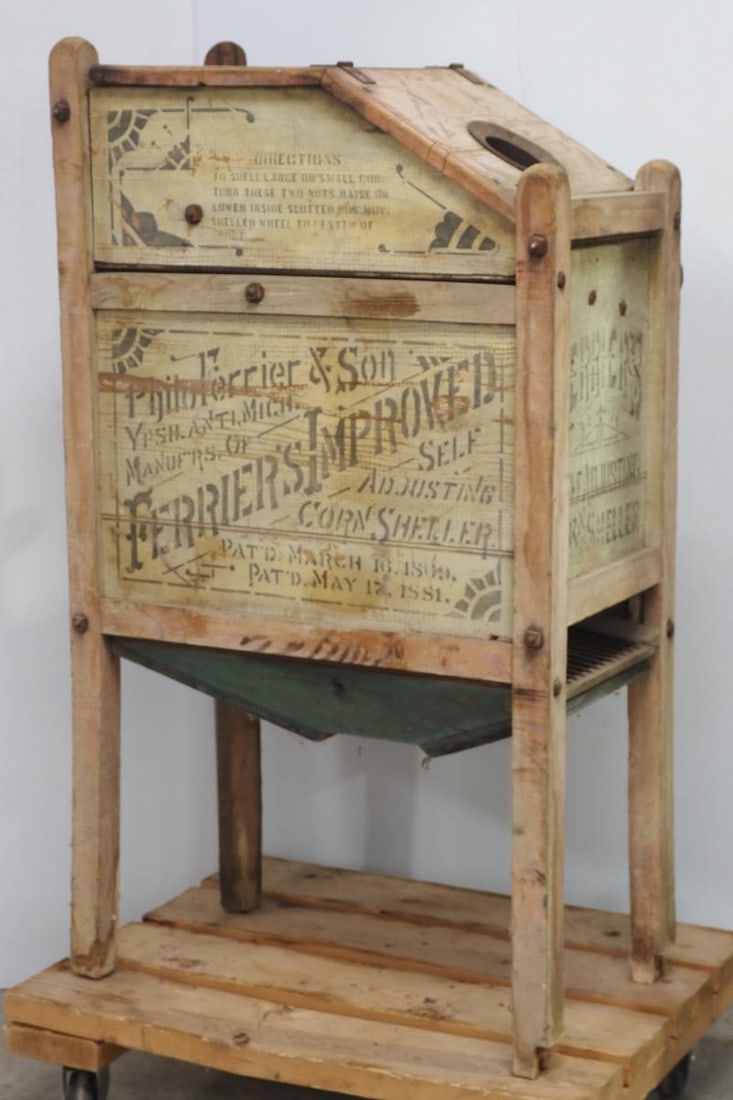 DIRECTIONS
TO SHELL LARGE OR SMALL COR
TURN THESE TWO NUTS. RAISE OR
LOWER INSIDE SLOTTED
SHELLER WHEEL TO CENTER OF
Philo Ferrier & Son
YPSILANTI, MICH.
MANUF'RS. OF
FERRIER'S IMPROVED
SELF
ADJUSTING
CORN SHELLER
PAT'D. MARCH 16. 1869.
PAT'D. MAY 17. 1881.
ADJUSTING
SHELLER